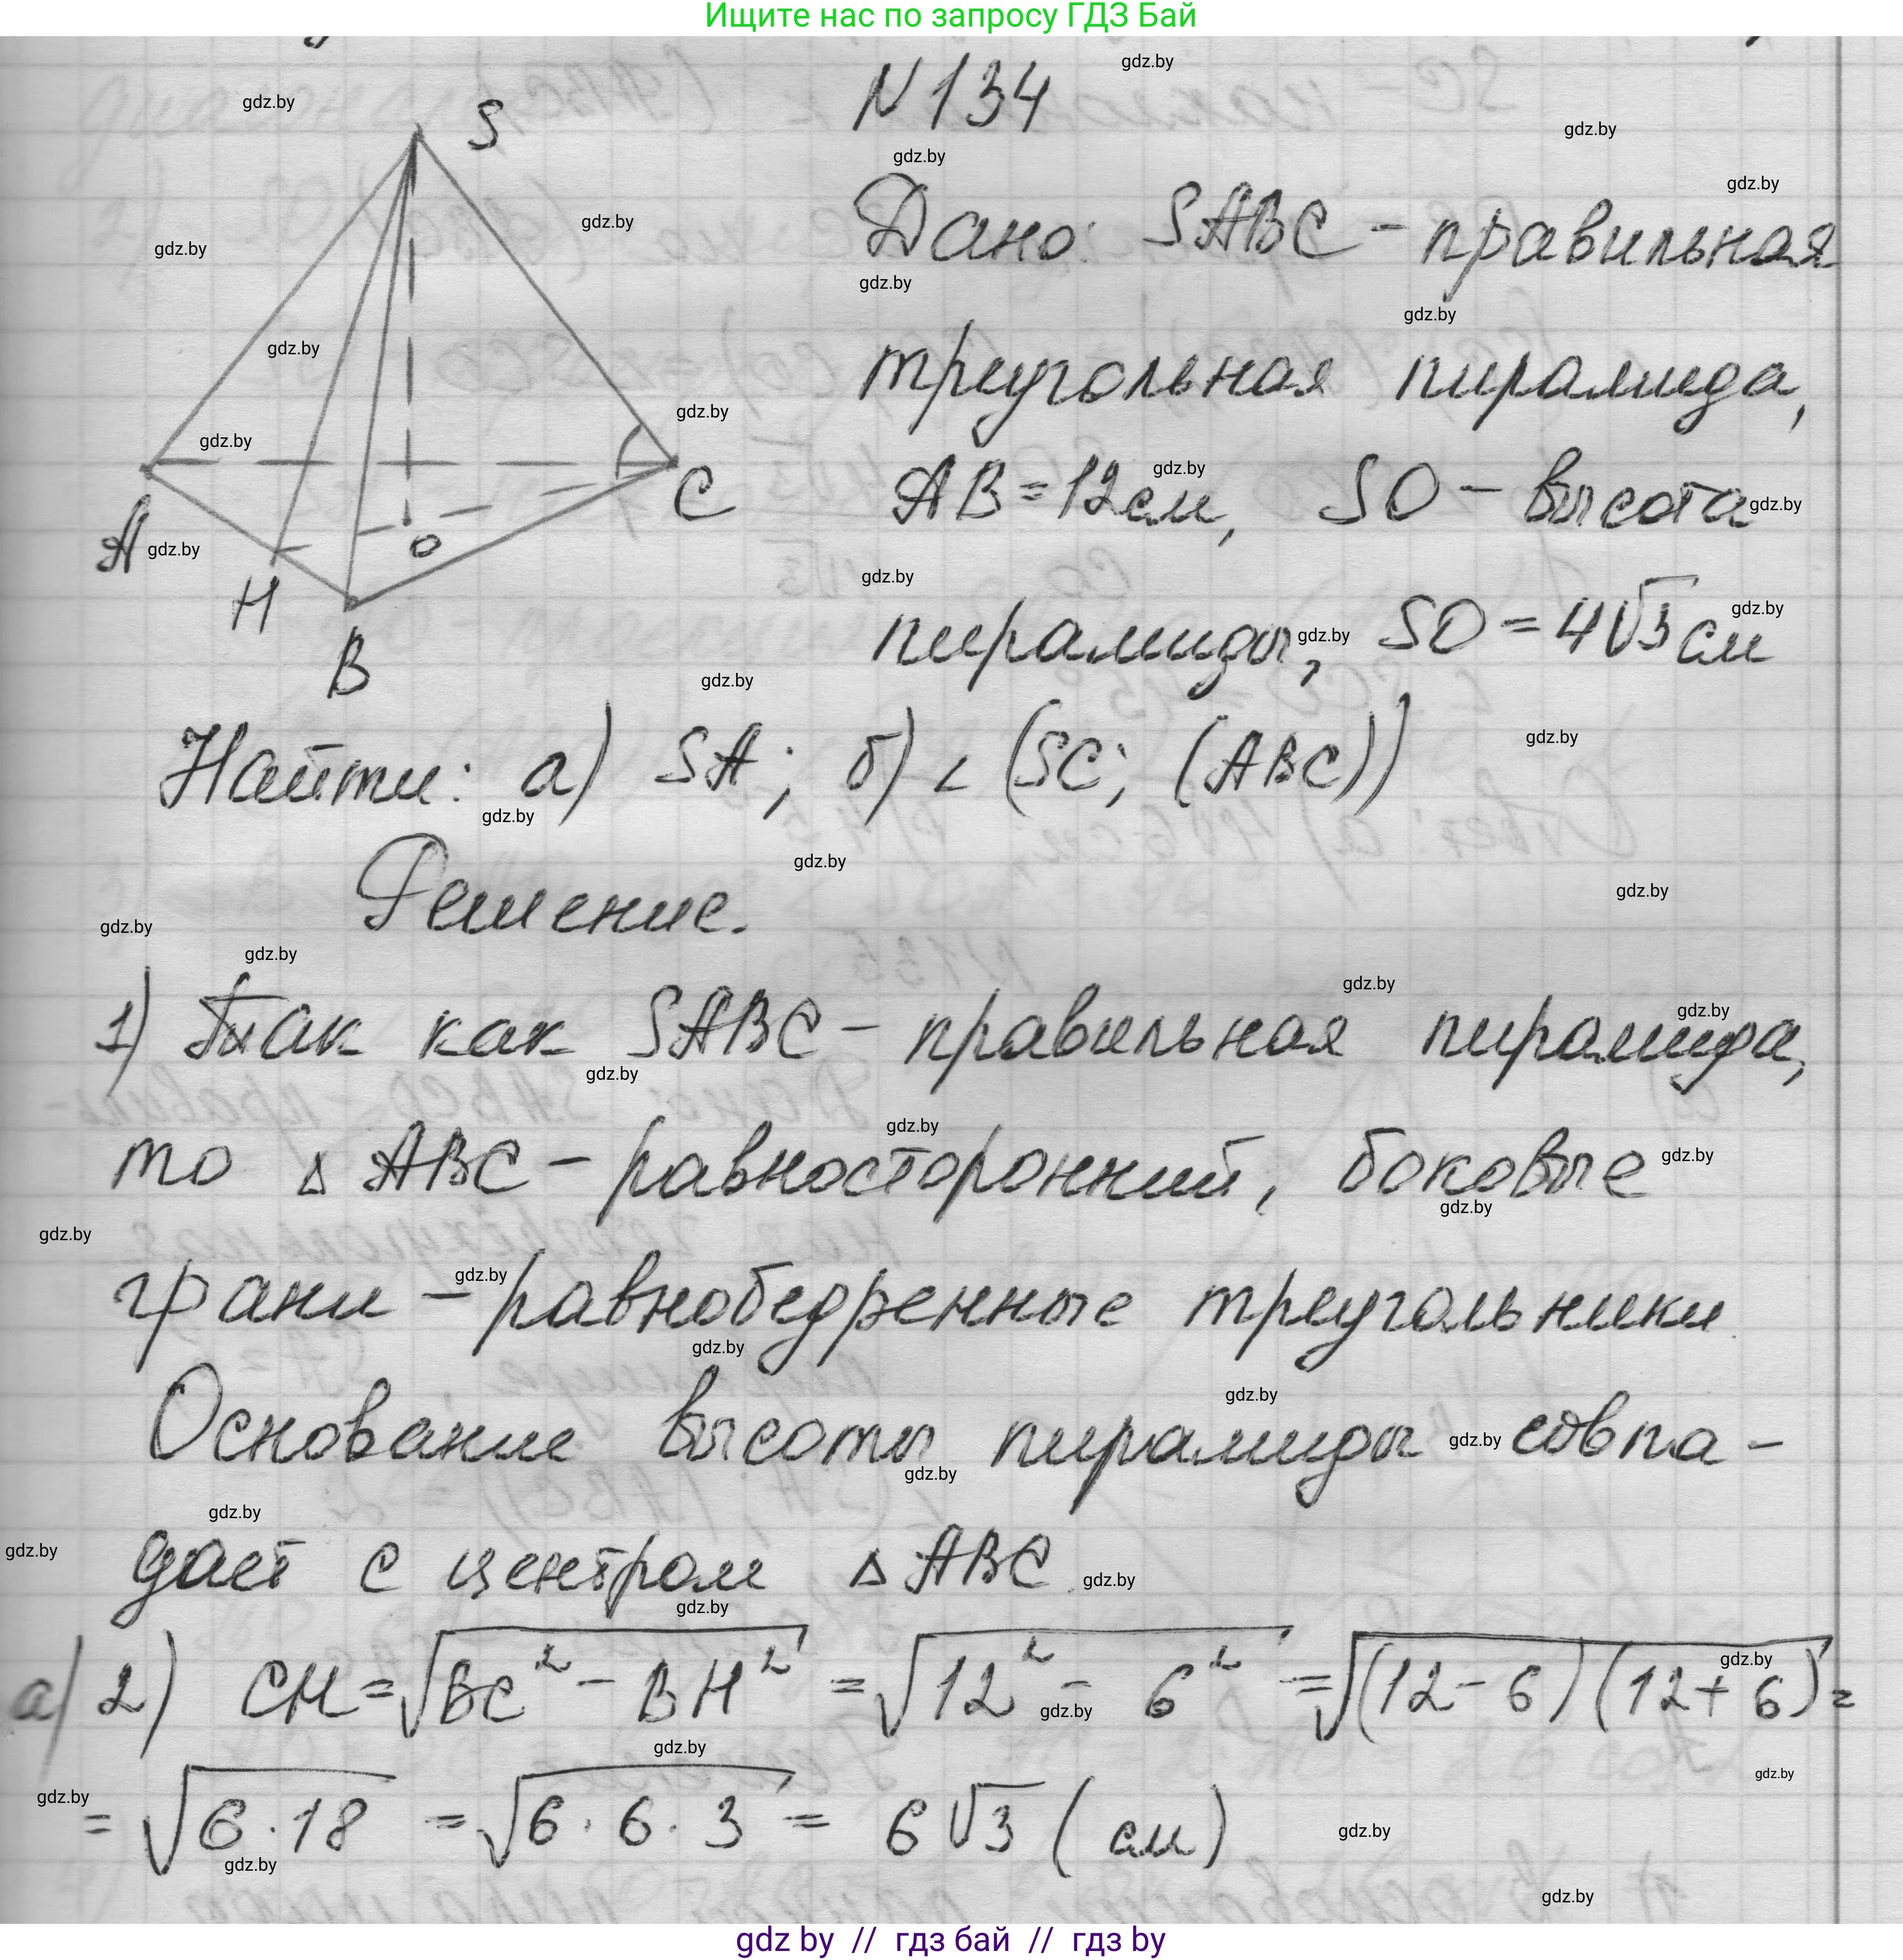 Ищите нас по запросу ГДЗ Бай
N 134
S
Дано: SABC - правильная
треугольная пирамида,
AB = 12 см, SO - высота
пирамиды, SO = 4√3 см
A
H
B
O
C
Найти: а) SA; б) ∠ (SC; (ABC))
Решение.
1) Так как SABC - правильная пирамида,
то △ ABC - равносторонний, боковые
грани - равнобедренные треугольники
Основание высоты пирамиды совпа-
дает с центром △ ABC.
а) 2) CH = √(BC² - BH²) = √(12² - 6²) = √((12 - 6)(12 + 6)) =
= √(6 · 18) = √(6 · 6 · 3) = 6√3 (см)
gdz.by
gdz by // гдз бай // гдз by